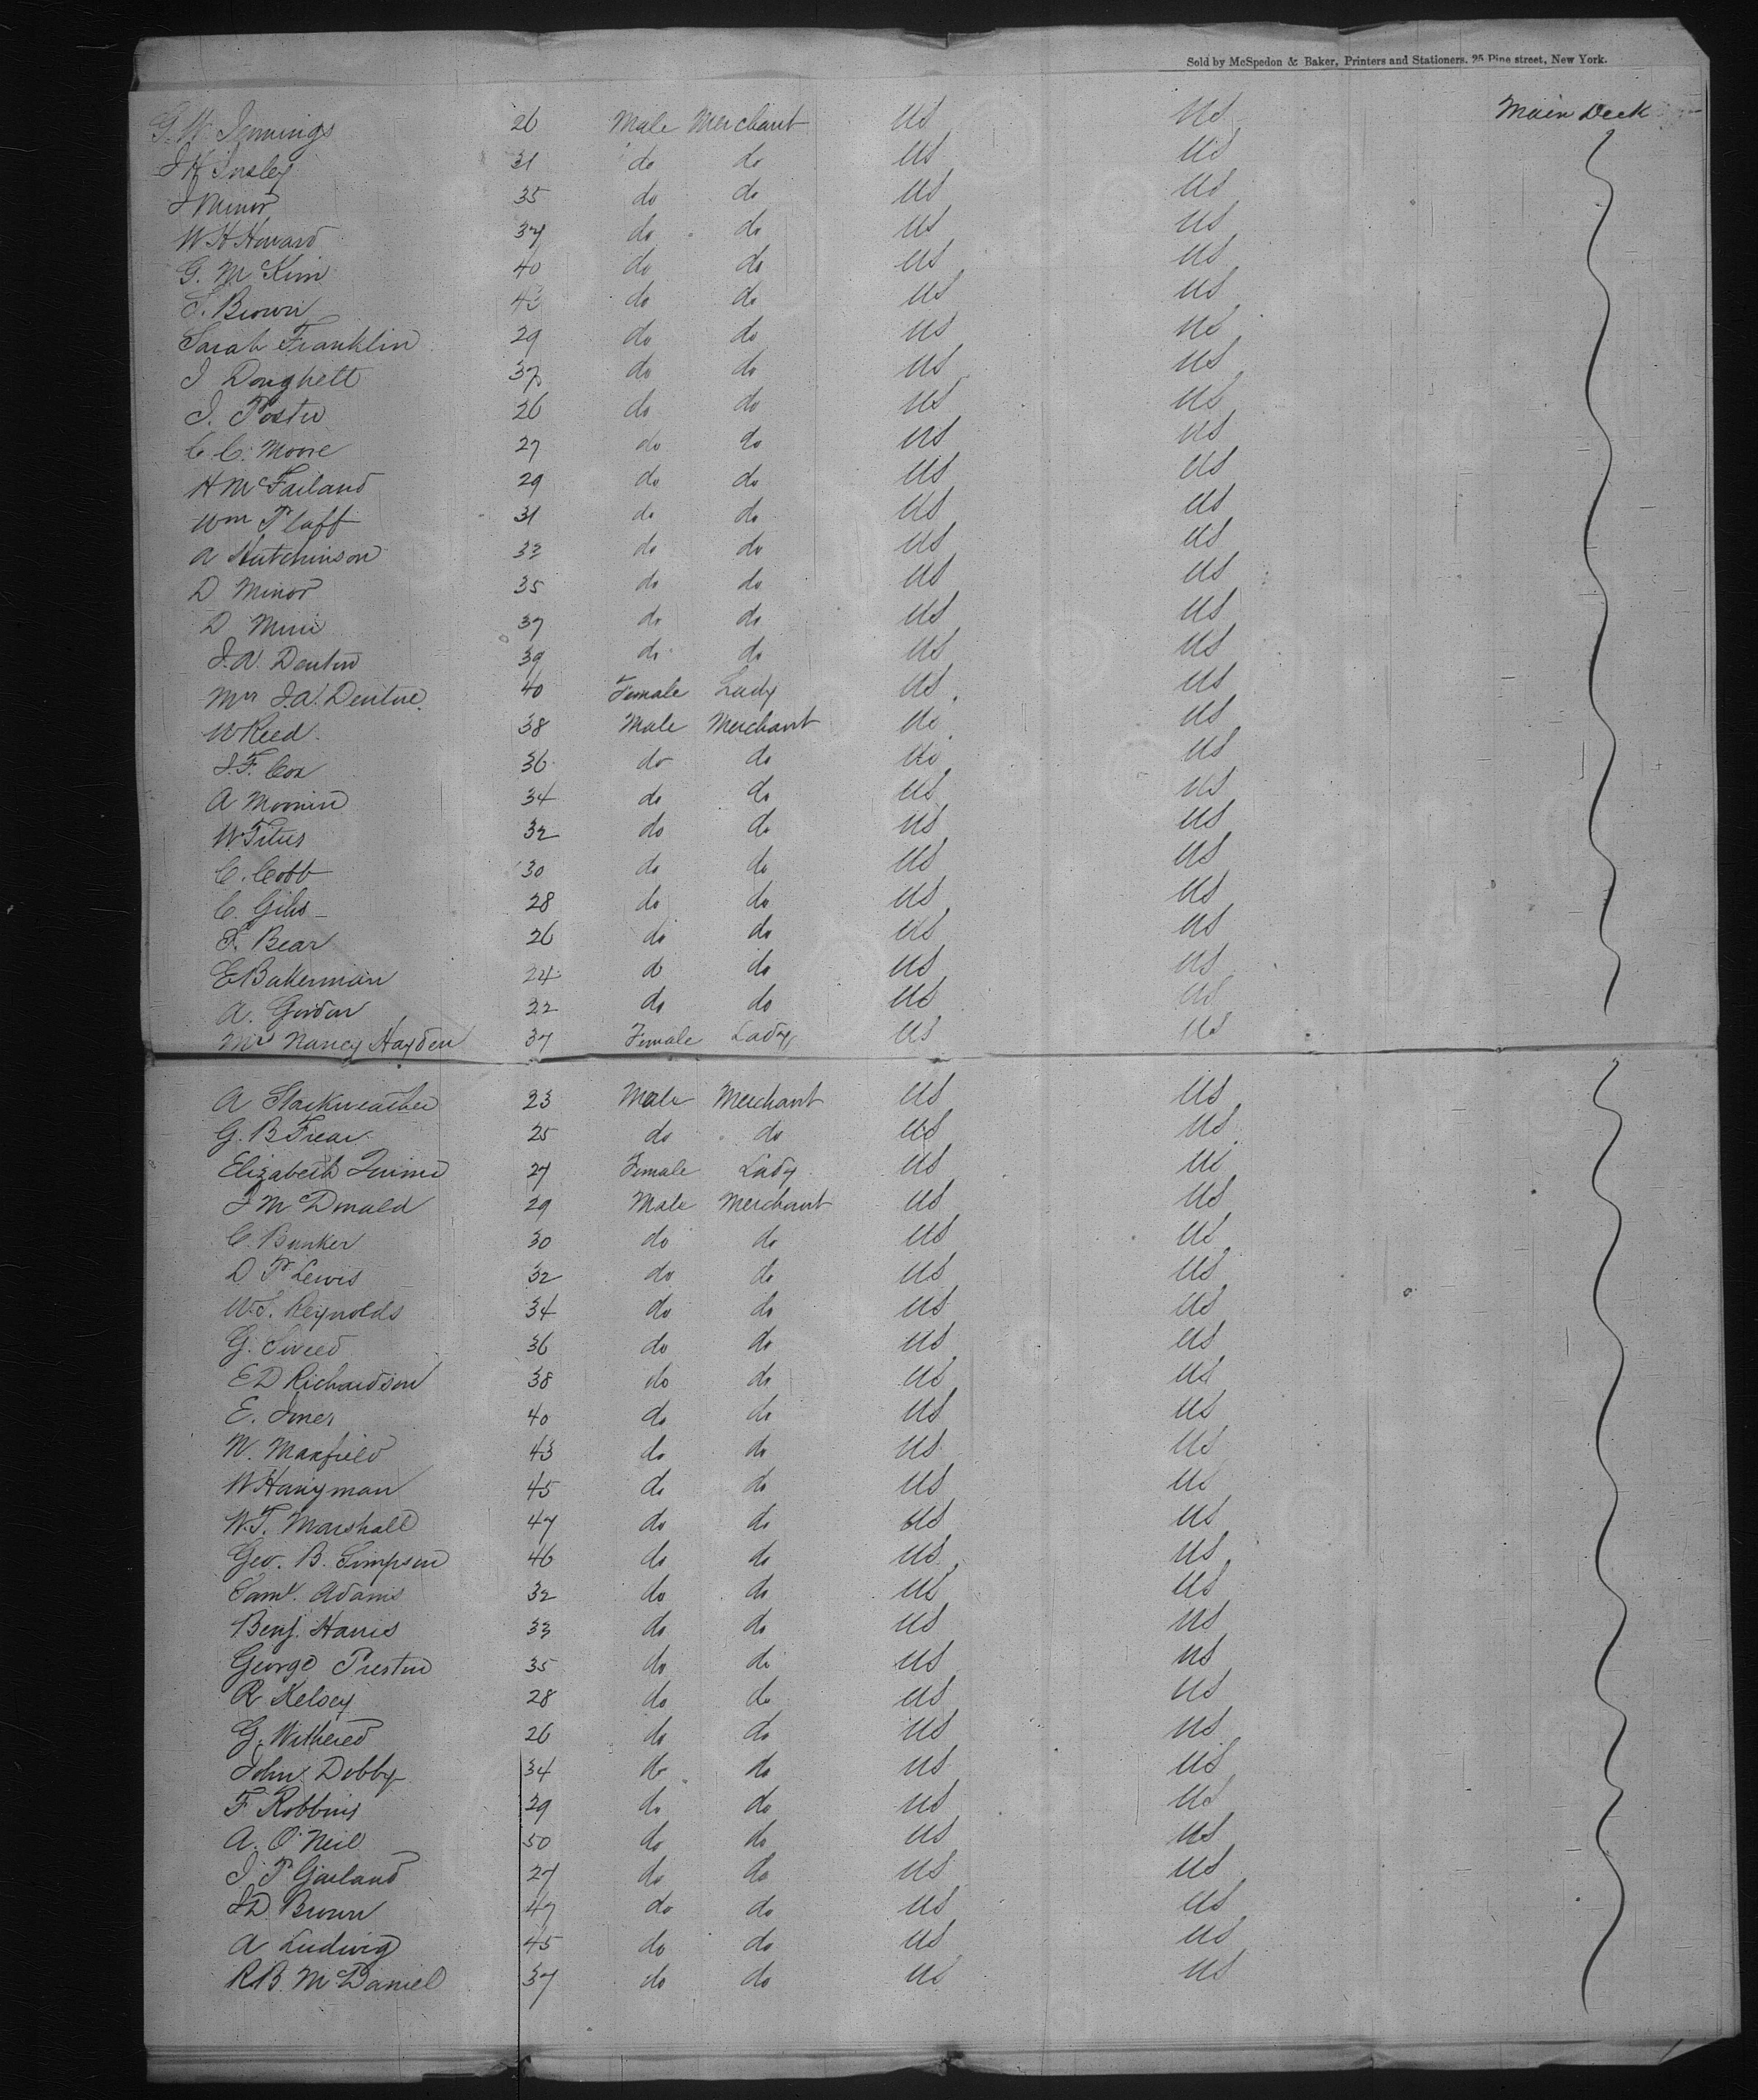 Sold by McSpedon & Baker, Printers and Stationers. 25 Pine street, New York.
G. W. Jennings 26 Male Merchant US US Main Deck
J H Insley 31 do do US US
J Minor 35 do do US US
W H Howard 37 do do US US
G. McKim 40 do do US US
S. Brown 43 do do US US
Sarah Franklin 29 do do US US
J Doughett 37 do do US US
J. Foster 26 do do US US
C C. Moore 27 do do US US
H McFarland 29 do do US US
Wm Plaff 31 do do US US
A Hutchinson 33 do do US US
D Minor 35 do do US US
D 37 do do US US
J. A. Denton 39 do do US US
Mrs J. A. Denton 40 Female Lady US US
W Reed 38 Male Merchant do US
J. F. Cox 36 do do do US
A 34 do do US US
W Titus 32 do do US US
C. Cobb 30 do do US US
C. Giles 28 do do US US
S. Bear 26 do do US US
E Bakerman 24 do do US US
A. Gordon 22 do do US US
Mrs Nancy Hayden 37 Female Lady US US
A Starkweather 23 Male Merchant US US
G. B Frear 25 do do US US
Elizabeth 27 Female Lady US US
J McDonald 29 Male Merchant US US
C. Bunker 30 do do US US
D P Lewis 32 do do US US
W. S. Reynolds 34 do do US US
G. Sweed 36 do do US US
E D Richardson 38 do do US US
E. 40 do do US US
W. Maxfield 43 do do US US
W Haryman 45 do do US US
W. T. Marshall 47 do do US US
Geo. B. Simpson 46 do do US US
Saml. Adams 32 do do US US
Benj. Harris 33 do do US US
George Preston 35 do do US US
R Kelsey 28 do do US US
G. Withered 26 do do US US
John Dobby 34 do do US US
F Robbins 29 do do US US
A. O'Neil 50 do do US US
J. P Garland 27 do do US US
J D. Brown 47 do do US US
A Ludwig 45 do do US US
R B. McDaniel 37 do do US US